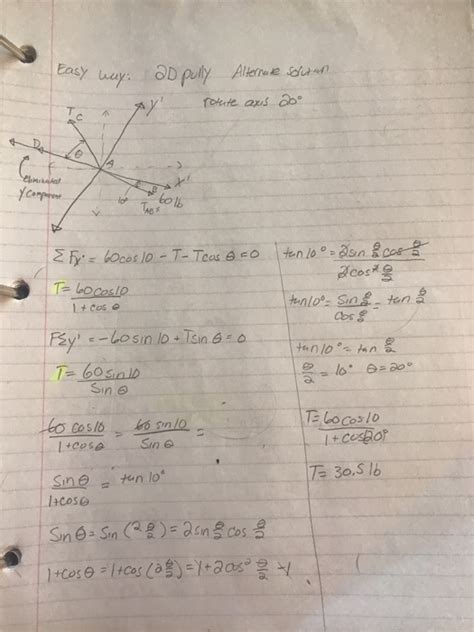 Easy way: 2D pully Alternate solution
rotate axis 20°
T C
Y'
D
θ
A
Eliminated
Y Component
X'
60 lb
T AB =
ΣFx' = 60cos10 - T - Tcos θ = 0
T = 60cos10
1 + cos θ
FΣy' = -60 sin10 + Tsin θ = 0
T = 60 sin10
Sin θ
60 cos10 = 60 sin10 =
1+cosθ Sin θ
Sin θ = tan 10°
1+cosθ
Sin θ = Sin (2 θ/2) = 2sin θ/2 cos θ/2
1+cosθ = 1+cos (2 θ/2) = 1+2cos² θ/2 -1
tan10° = 2sin θ/2 cos θ/2
2cos² θ/2
tan10° = Sin θ/2 = tan θ/2
Cos θ/2
tan10° = tan θ/2
θ/2 = 10° θ = 20°
T = 60cos10
1 + cos20°
T = 30.5 lb